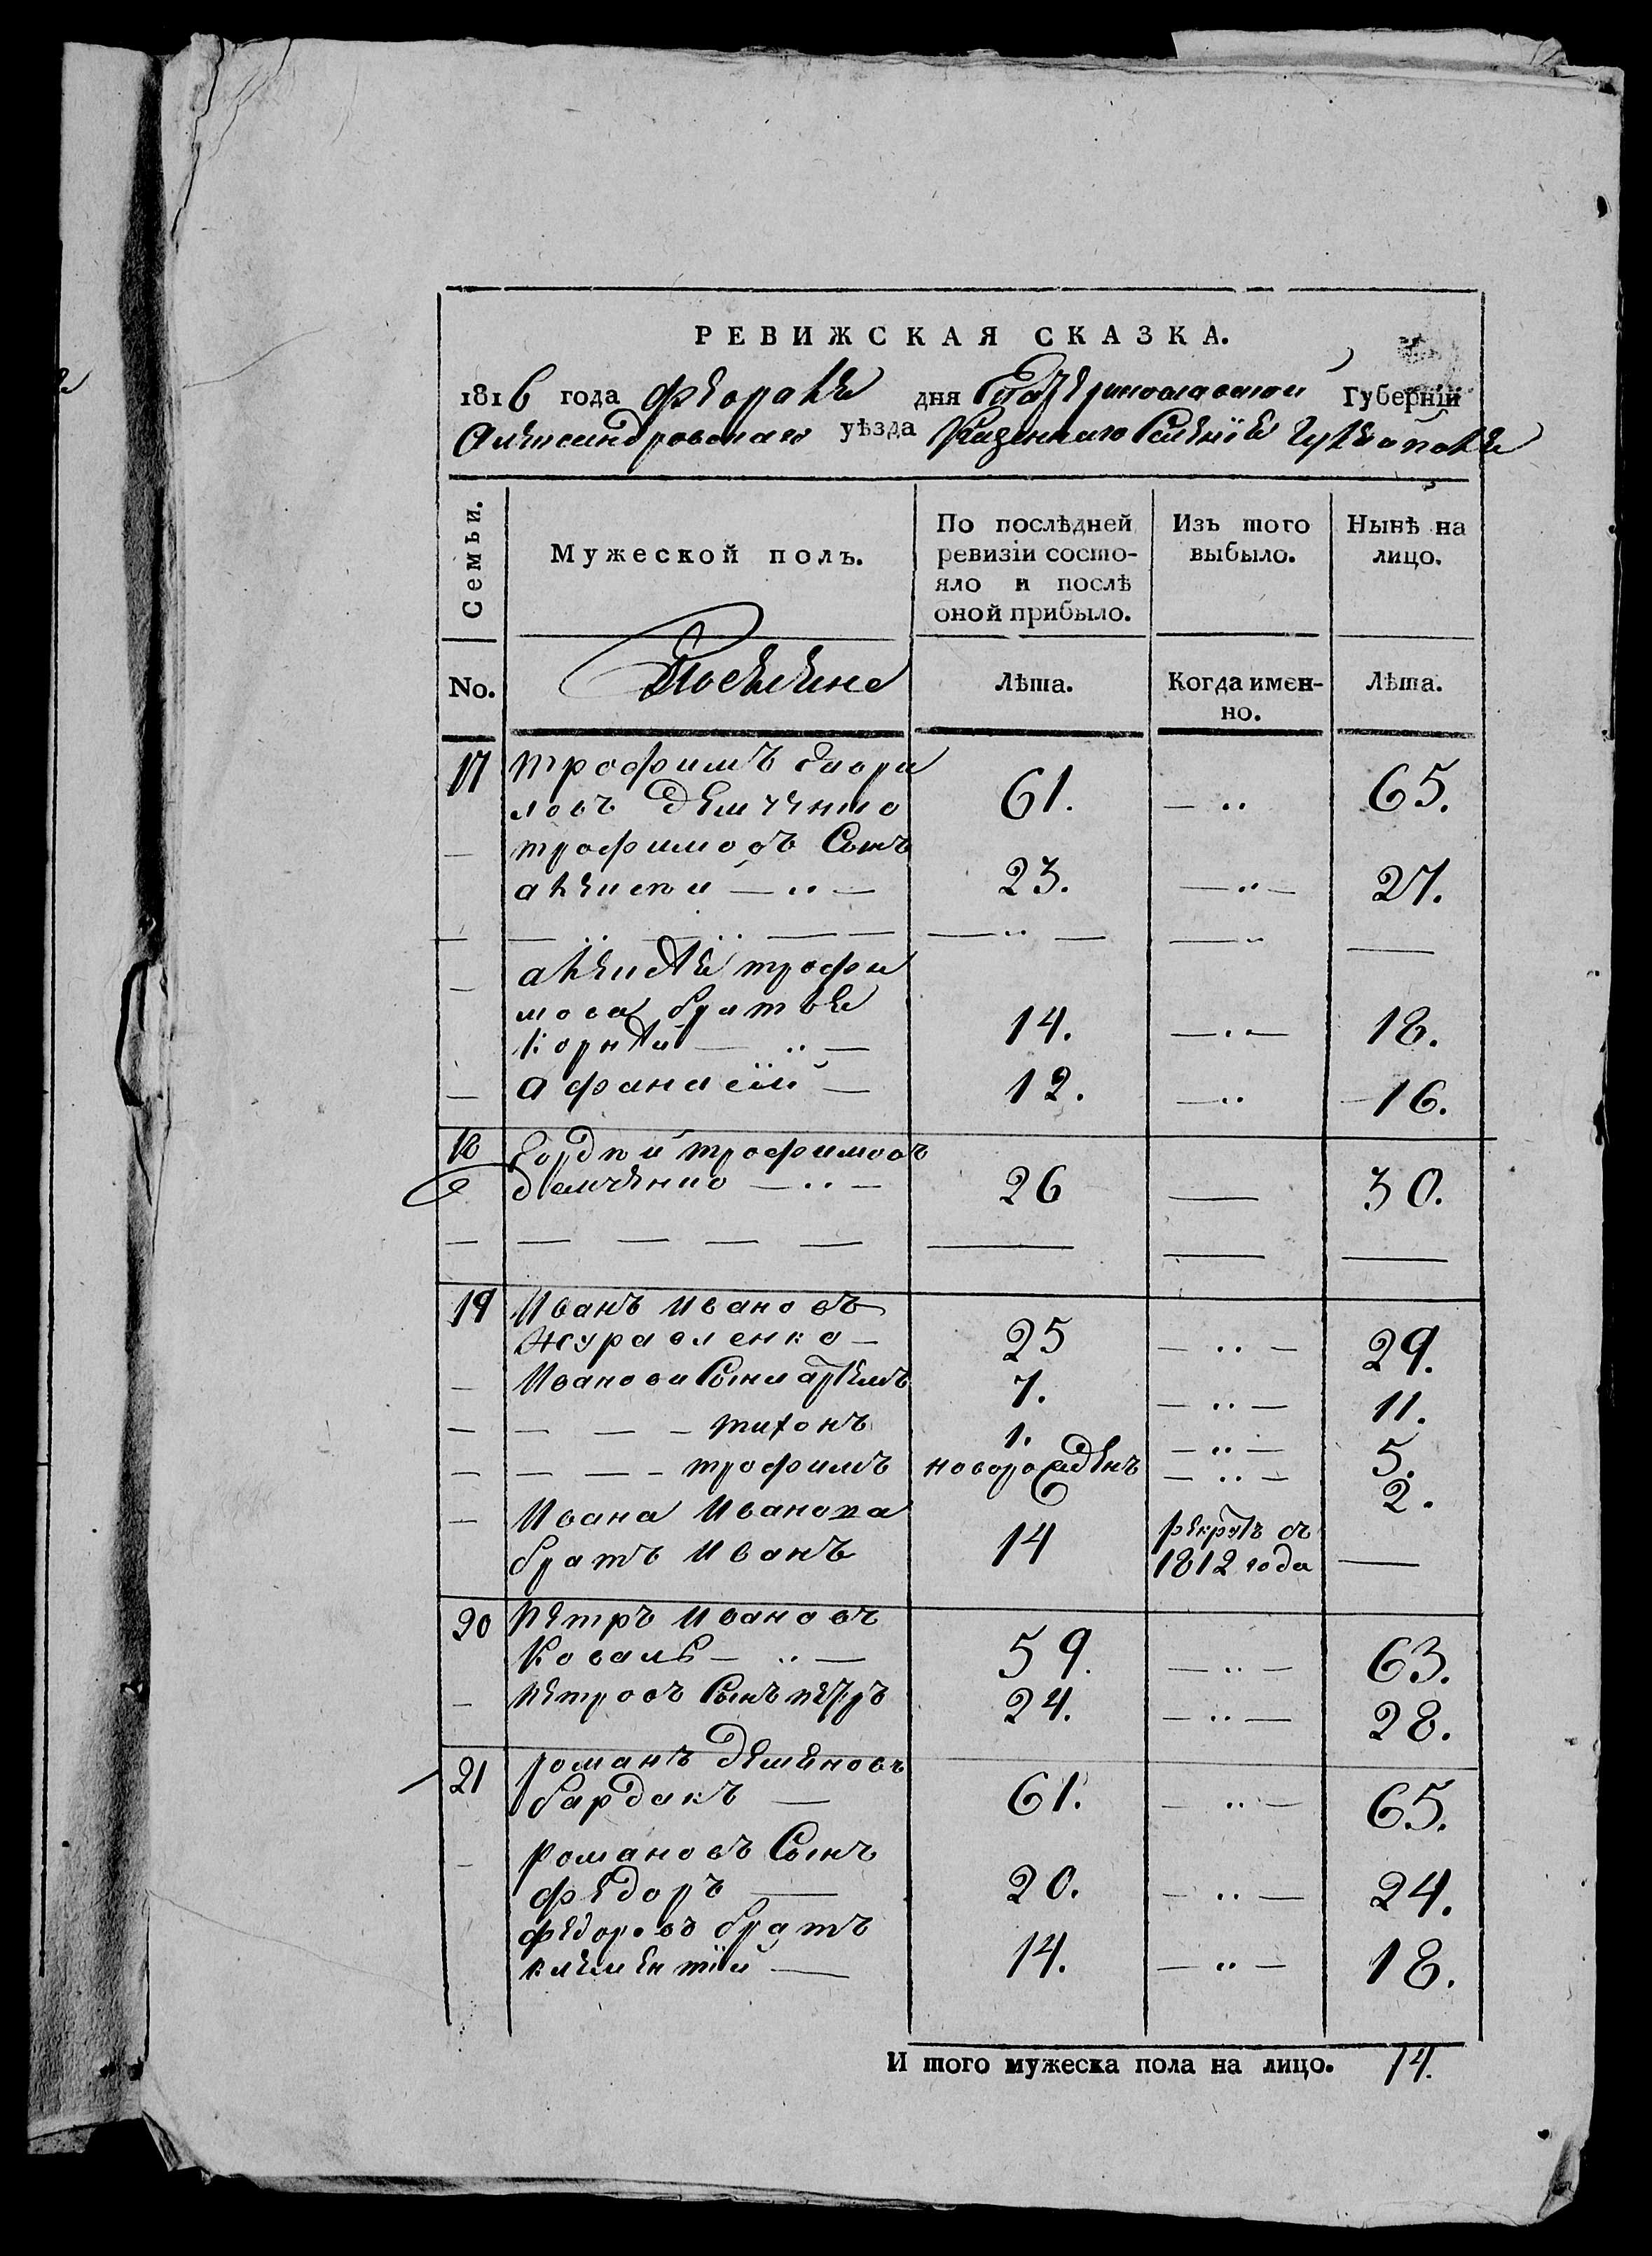 РЕВИЖСКАЯ СКАЗКА.
1816 года февраля дня Екатеринославской Губерніи
Александровскаго уѣзда Казеннаго Селенія
Семьи.
Мужеской полъ.
По послѣдней ревизіи состояло и послѣ оной прибыло.
Изъ того выбыло.
Нынѣ на лицо.
No.
Поселяне
Лѣта.
Когда именно.
Лѣта.
17 трофимъ гаври
ловъ демченко 61. — ·· 65.
— трофимовъ Сынъ
алексѣй — ·· — 23. — ·· — 27.
— алексѣя трофи
мова братья
корнѣй — ·· — 14. — ·· — 18.
— афанасій — 12. — ·· 16.
18 гордѣй трофимовъ
демченко — ·· — 26 — 30.
19 Иванъ Ивановъ
журавленко — 25 — ·· — 29.
— Иванови Сыни артемъ 7. — ·· — 11.
— — — — тихонъ 1. — ·· — 5.
— — — — трофимъ новорожденъ — ·· — 2.
— Ивана Иванова
братъ Иванъ 14 рекрутъ съ 1812 года —
20 Петръ Ивановъ
Коваль — ·· — 59. — ·· — 63.
— Петровъ Сынъ петръ 24. — ·· — 28.
21 романъ деменовъ
бардакъ — 61. — ·· — 65.
— романовъ Сынъ
федоръ — 20. — ·· — 24.
федоровъ братъ
климентій — 14. — ·· — 18.
И того мужеска пола на лицо. 14.